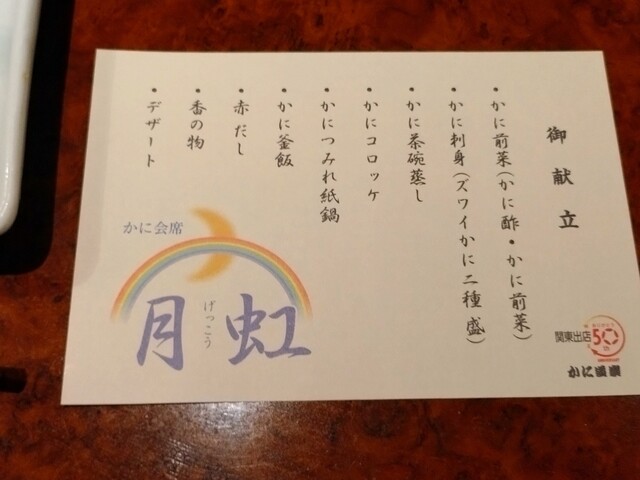 御献立
・かに前菜(かに酢・かに前菜)
・かに刺身(ズワイかに二種盛)
・かに茶碗蒸し
・かにコロッケ
・かにつみれ紙鍋
・かに釜飯
・赤だし
・香の物
・デザート
かに会席
月虹
げっこう
関東出店
50
かに道楽